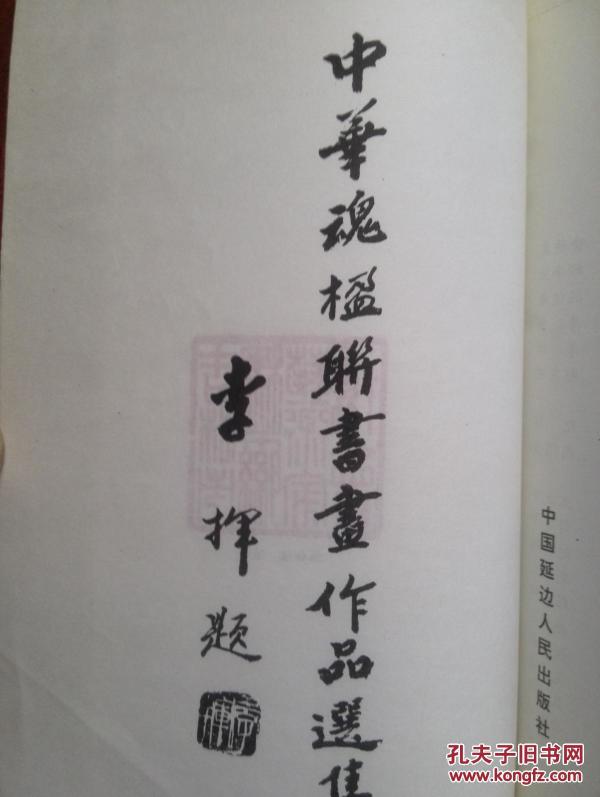 中華魂楹聯書畫作品選集
李揮题
中国延边人民出版社
孔夫子旧书网
www.kongfz.com